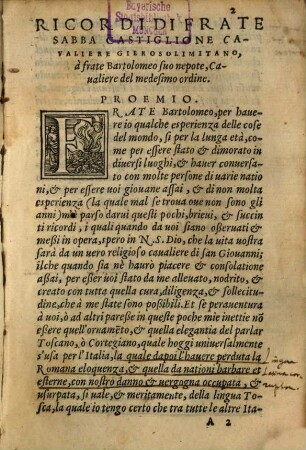 Bayerische
2
RICORDI DI FRATE
SABBA CASTIGLIONE CA-
VALIERE GIEROSOLIMITANO,
à frate Bartolomeo suo nepote, Ca-
ualiere del medesimo ordine.
PROEMIO.
FRATE Bartolomeo, per haue-
re io qualche esperienza delle cose
del mondo, sì per la lunga età, co-
me per essere stato & dimorato in
diuersi luoghi, & hauer conuersa-
to con molte persone di uarie natio
ni, & per essere uoi giouane assai, & di non molta
esperienza (la quale mal se troua oue non sono gli
anni) mi è parso darui questi pochi, brieui, & succin
ti ricordi, i quali quando da uoi siano osseruati &
messi in opera, spero in N. S. Dio, che la uita uostra
sarà da un uero religioso caualiere di san Giouanni;
ilche quando sia nè haurò piacere & consolatione
assai, per essere uoi stato da me alleuato, nodrito, &
creato con tutta quella cura, diligenza, & sollecitu-
dine, che à me state sono possibili. Et se perauentura
à uoi, ò ad altri paresse in queste poche mie inettie nō
essere quell'ornamēto, & quella elegantia del parlar
Toscano, ò Cortegiano, quale hoggi uniuersalmente
s'usa per l'Italia, la quale dapoi l'hauere perduta la
Romana eloquenza, & quella da nationi barbare et
esterne, con nostro danno & uergogna occupata, &
usurpata, si uale, & meritamente, della lingua To-
sca, la quale io tengo certo che tra tutte le altre Ita-
A 2